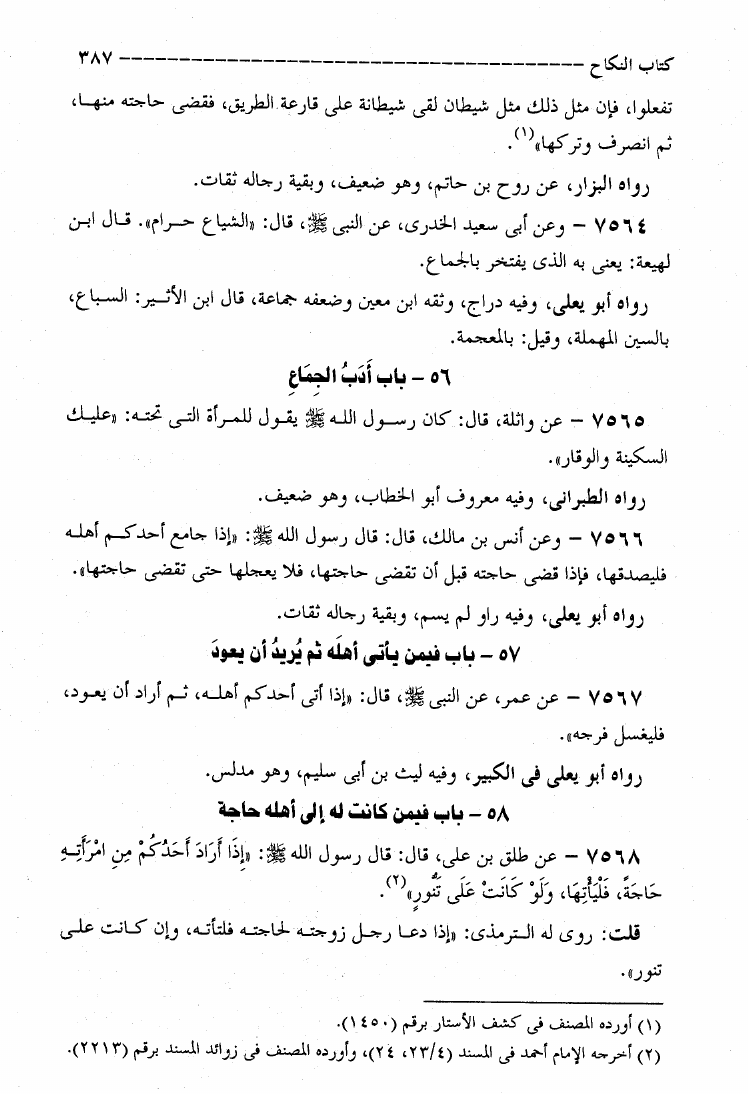 كتاب النكاح ------------------------------------------ ٣٨٧
تفعلوا، فإن مثل ذلك مثل شيطان لقى شيطانة على قارعة الطريق، فقضى حاجته منهـا،
ثم انصرف وتركها»(١).
رواه البزار، عن روح بن حاتم، وهو ضعيف، وبقية رجاله ثقات.
٧٥٦٤ – وعن أبى سعيد الخدرى، عن النبى ﷺ، قال: «الشياع حـرام». قـال ابـن
لهيعة: يعنى به الذى يفتخر بالجماع.
رواه أبو يعلى، وفيه دراج، وثقه ابن معين وضعفه جماعة، قال ابن الأثـير: السباع،
بالسين المهملة، وقيل: بالمعجمة.
٥٦ – باب أَدَبُ الجِمَاعِ
٧٥٦٥ – عن واثلة، قال: كان رسـول اللـه ﷺ يقـول للمـرأة التـى تحتـه: «عليـك
السكينة والوقار».
رواه الطبرانى، وفيه معروف أبو الخطاب، وهو ضعيف.
٧٥٦٦ – وعن أنس بن مالك، قال: قال رسول الله ﷺ: «إذا جامع أحدكـم أهلـه
فليصدقها، فإذا قضى حاجته قبل أن تقضى حاجتها، فلا يعجلها حتى تقضى حاجتها».
رواه أبو يعلى، وفيه راو لم يسم، وبقية رجاله ثقات.
٥٧ – باب فيمن يأتى أهلَه ثم يُريدُ أن يعودَ
٧٥٦٧ – عن عمر، عن النبى ﷺ، قال: «إذا أتى أحدكم أهلـه، ثـم أراد أن يعـود،
فليغسل فرجه».
رواه أبو يعلى فى الكبير، وفيه ليث بن أبى سليم، وهو مدلس.
٥٨ – باب فيمن كانت له إلى أهله حاجة
٧٥٦٨ – عن طلق بن على، قال: قال رسول الله ﷺ: «إِذَا أَرَادَ أَحَدُكُمْ مِنِ امْرَأَتِـهِ
حَاجَةً، فَلْيَأْتِهَا، وَلَوْ كَانَتْ عَلَى تَنُّورٍ»(٢).
قلت: روى له الـترمذى: «إذا دعـا رجـل زوجتـه لحاجتـه فلتأتـه، وإن كـانت علـى
تنور».
(١) أورده المصنف فى كشف الأستار برقم (١٤٥٠).
(٢) أخرجه الإمام أحمد فى المسند (٢٣/٤، ٢٤)، وأورده المصنف فى زوائد المسند برقم (٢٢١٣).